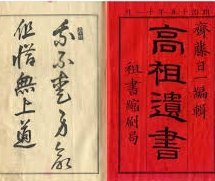 齋藤日一編輯
高祖遺書
祖書縮刷局
我不愛身命
但惜無上道